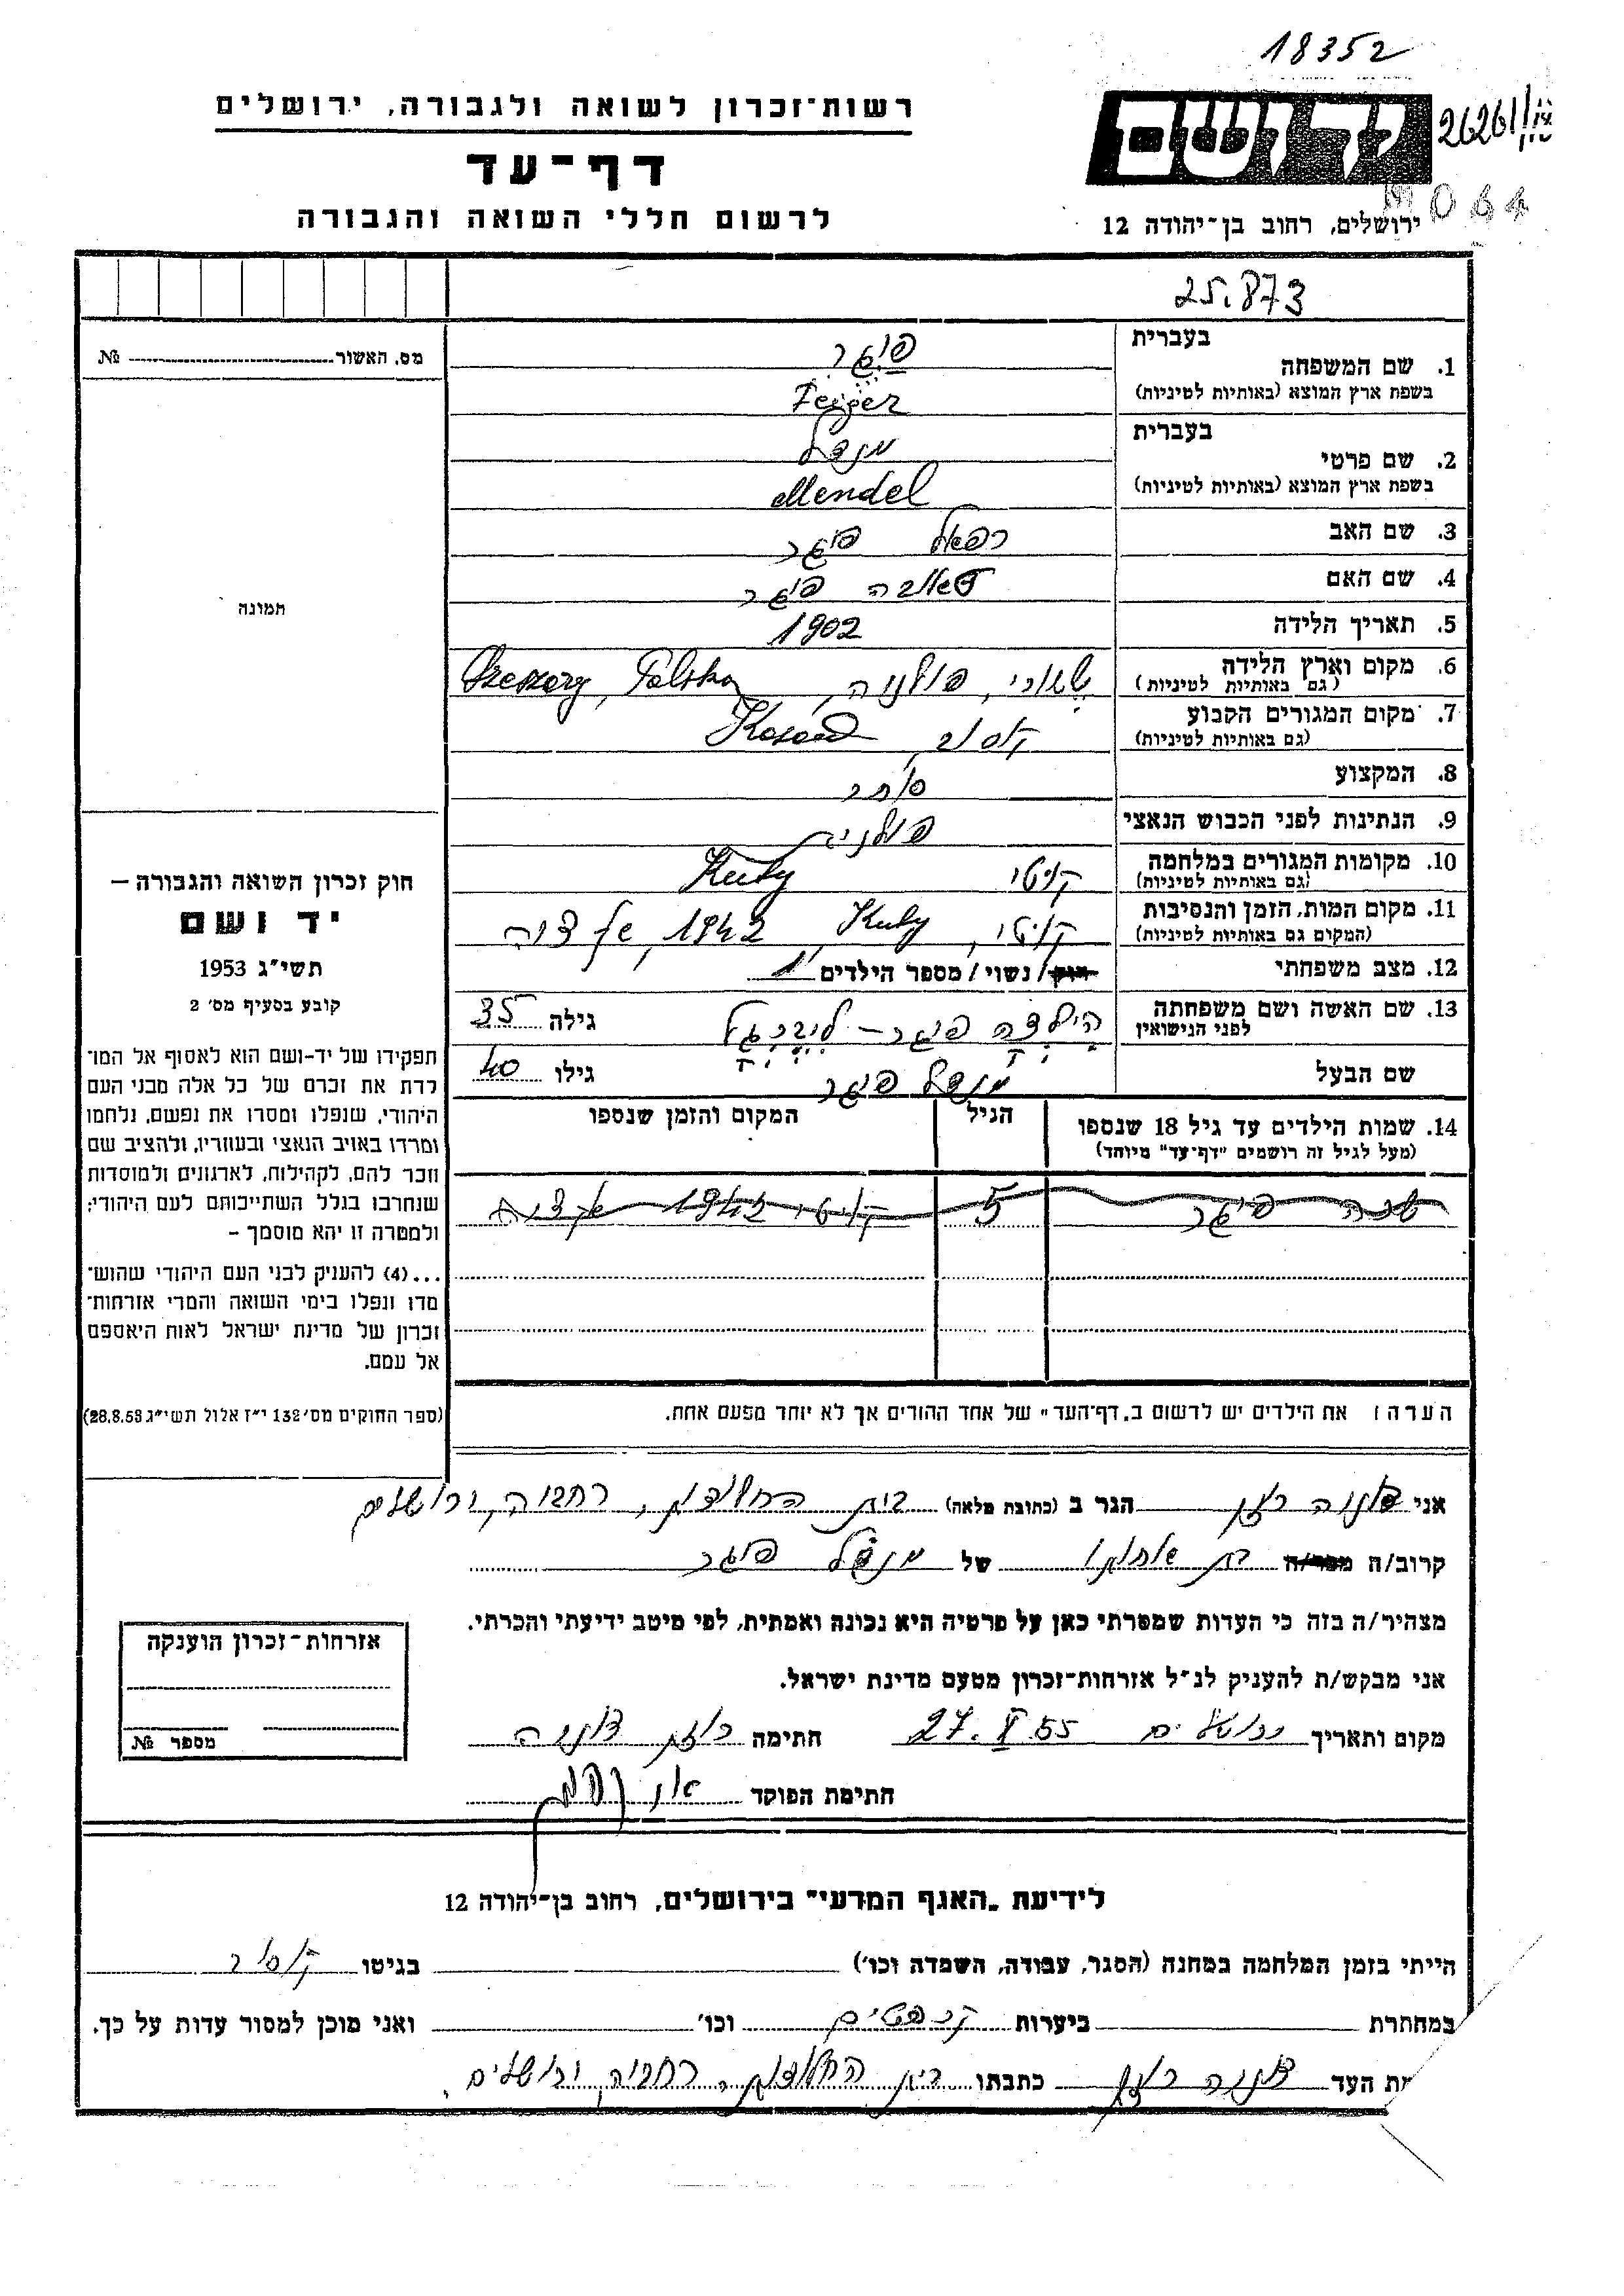 18352
רשות־זכרון לשואה ולגבורה, ירושלים
דף־עד
לרשום חללי השואה והגבורה
ידושם
ירושלים, רחוב בן־יהודה 12
25.873
מס. האשור № 
1. שם המשפחה
בעברית פיגר
בשפת ארץ המוצא (באותיות לטיניות) Feiger
2. שם פרטי
בעברית מנדל
בשפת ארץ המוצא (באותיות לטיניות) Mendel
3. שם האב רפאל פיגר
4. שם האם פיגר
5. תאריך הלידה 1902
6. מקום וארץ הלידה (גם באותיות לטיניות) פולניה, Polska
7. מקום המגורים הקבוע (גם באותיות לטיניות) קוסוב
8. המקצוע סוחר
9. הנתינות לפני הכבוש הנאצי פולנית
10. מקומות המגורים במלחמה (גם באותיות לטיניות) קוטי Kuty
11. מקום המות, הזמן והנסיבות (המקום גם באותיות לטיניות) קוטי, Kuty, 1942,
12. מצב משפחתי רווק/נשוי/מספר הילדים 1
13. שם האשה ושם משפחתה לפני הנישואין פיגר – גילה 35
שם הבעל מנדל פיגר גילו 40
14. שמות הילדים עד גיל 18 שנספו (מעל לגיל זה רושמים "דף־עד" מיוחד) הגיל המקום והזמן שנספו
פיגר 5 קוטי 1942
הערה: את הילדים יש לרשום ב„דף־העד" של אחד ההורים אך לא יותר מפעם אחת.
תמונה
חוק זכרון השואה והגבורה —
יד ושם
תשי"ג 1953
קובע בסעיף מס' 2
תפקידו של יד-ושם הוא לאסוף אל המו־
לדת את זכרם של כל אלה מבני העם
היהודי, שנפלו ומסרו את נפשם, נלחמו
ומרדו באויב הנאצי ובעוזריו, ולהציב שם
וזכר להם, לקהילות, לארגונים ולמוסדות
שנחרבו בגלל השתייכותם לעם היהודי;
ולמטרה זו יהא מוסמך –
...(4) להעניק לבני העם היהודי שהוש־
מדו ונפלו בימי השואה והמרי אזרחות־
זכרון של מדינת ישראל לאות היאספם
אל עמם.
(ספר החוקים מס' 132 י"ז אלול תשי"ג 28.8.53)
אני הגר ב (כתובת מלאה) בית החלוצות, רחביה, ירושלים
קרוב/ה מכר/ה בת אחותו של מנדל פיגר
מצהיר/ה בזה כי העדות שמסרתי כאן על פרטיה היא נכונה ואמתית, לפי מיטב ידיעתי והכרתי.
אני מבקש/ת להעניק לנ"ל אזרחות־זכרון מטעם מדינת ישראל.
מקום ותאריך ירושלים 55 חתימה
חתימת הפוקד
אזרחות־זכרון הוענקה
מספר №
לידיעת „האגף המדעי" בירושלים, רחוב בן־יהודה 12
הייתי בזמן המלחמה במחנה (הסגר, עבודה, השמדה וכו') בגיטו קוסוב
במחתרת ביערות קרפטים וכו' ואני מוכן למסור עדות על כך.
ת העד כתבתו בית החלוצות, רחביה, ירושלים.